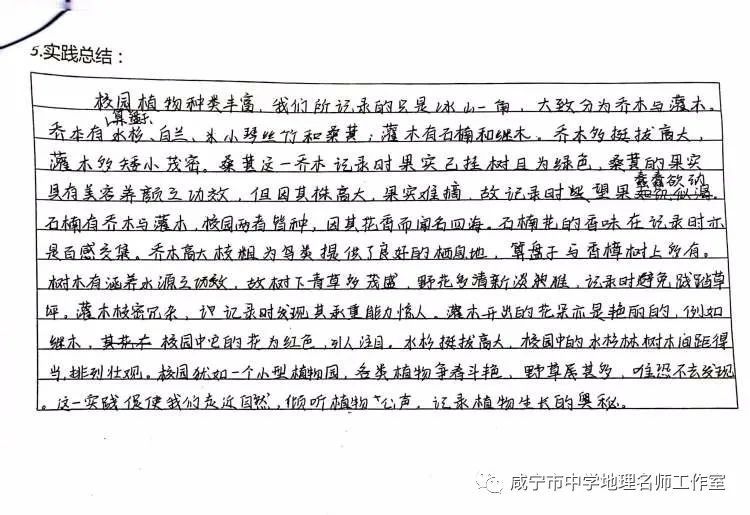 5.实践总结：
校园植物种类丰富，我们所记录的只是冰山一角，大致分为乔木与灌木。
算盘子
乔木有水杉、白兰、米小琴丝竹和桑葚；灌木有石楠和继木。乔木多挺拔高大，
灌木多矮小茂密。桑葚这一乔木记录时果实已挂树且为绿色，桑葚的果实
蠢蠢欲动
具有美容养颜之功效，但因其株高大，果实难摘，故记录时望果。
石楠有乔木与灌木，校园两者皆种，因其花香而闻名四海。石楠花的香味在记录时亦
是百感交集。乔木高大枝粗为鸟类提供了良好的栖息地，算盘子与香樟树上多有。
树木有涵养水源之功效，故树下青草多茂盛，野花多清新淡雅，记录时避免践踏草
坪。灌木枝密冗杂，记录时发现其承重能力惊人。灌木开出的花朵亦是艳丽的，例如
继木，其花在校园中它的花为红色，引人注目。水杉挺拔高大，校园中的水杉林树木间距得
当，排列壮观。校园犹如一个小型植物园，各类植物争奇斗艳，野草居甚多，唯恐不去发现
。这一实践促使我们走近自然，倾听植物心声，记录植物生长的奥秘。
咸宁市中学地理名师工作室